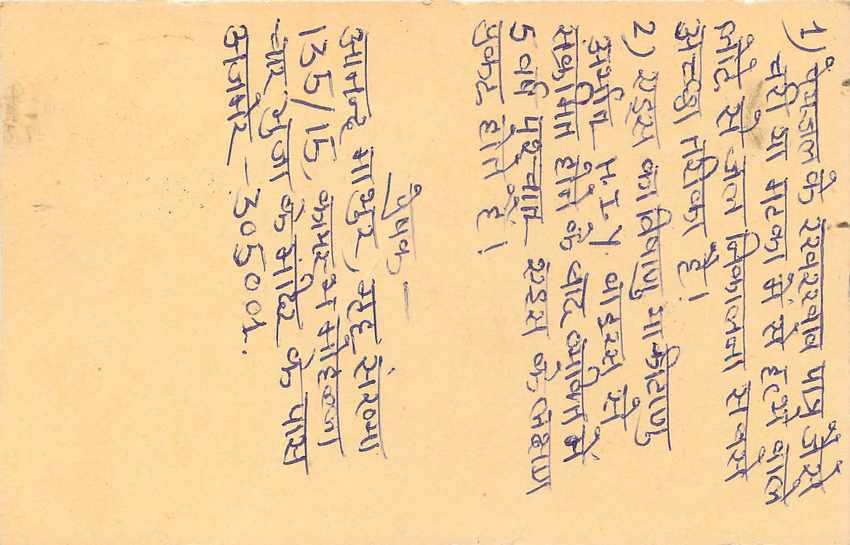 1) पेयजल के रखरखाव पात्र जैसे
चरी या मटका में से हत्थे वाले
लोटे से जल निकालना सबसे
अच्छा तरीका है।
2) एड्स का विषाणु या कीटाणु
अर्थात H.I.V. वाइरस से
संक्रमित होने के बाद व्यक्ति में
5 वर्ष पश्चात एड्स के लक्षण
प्रकट होते हैं।
प्रेषक —
आनन्द माथुर, गृह संख्या
135/15, कायस्थ मोहल्ला
चार भुजा के मंदिर के पास
अजमेर - 305001.